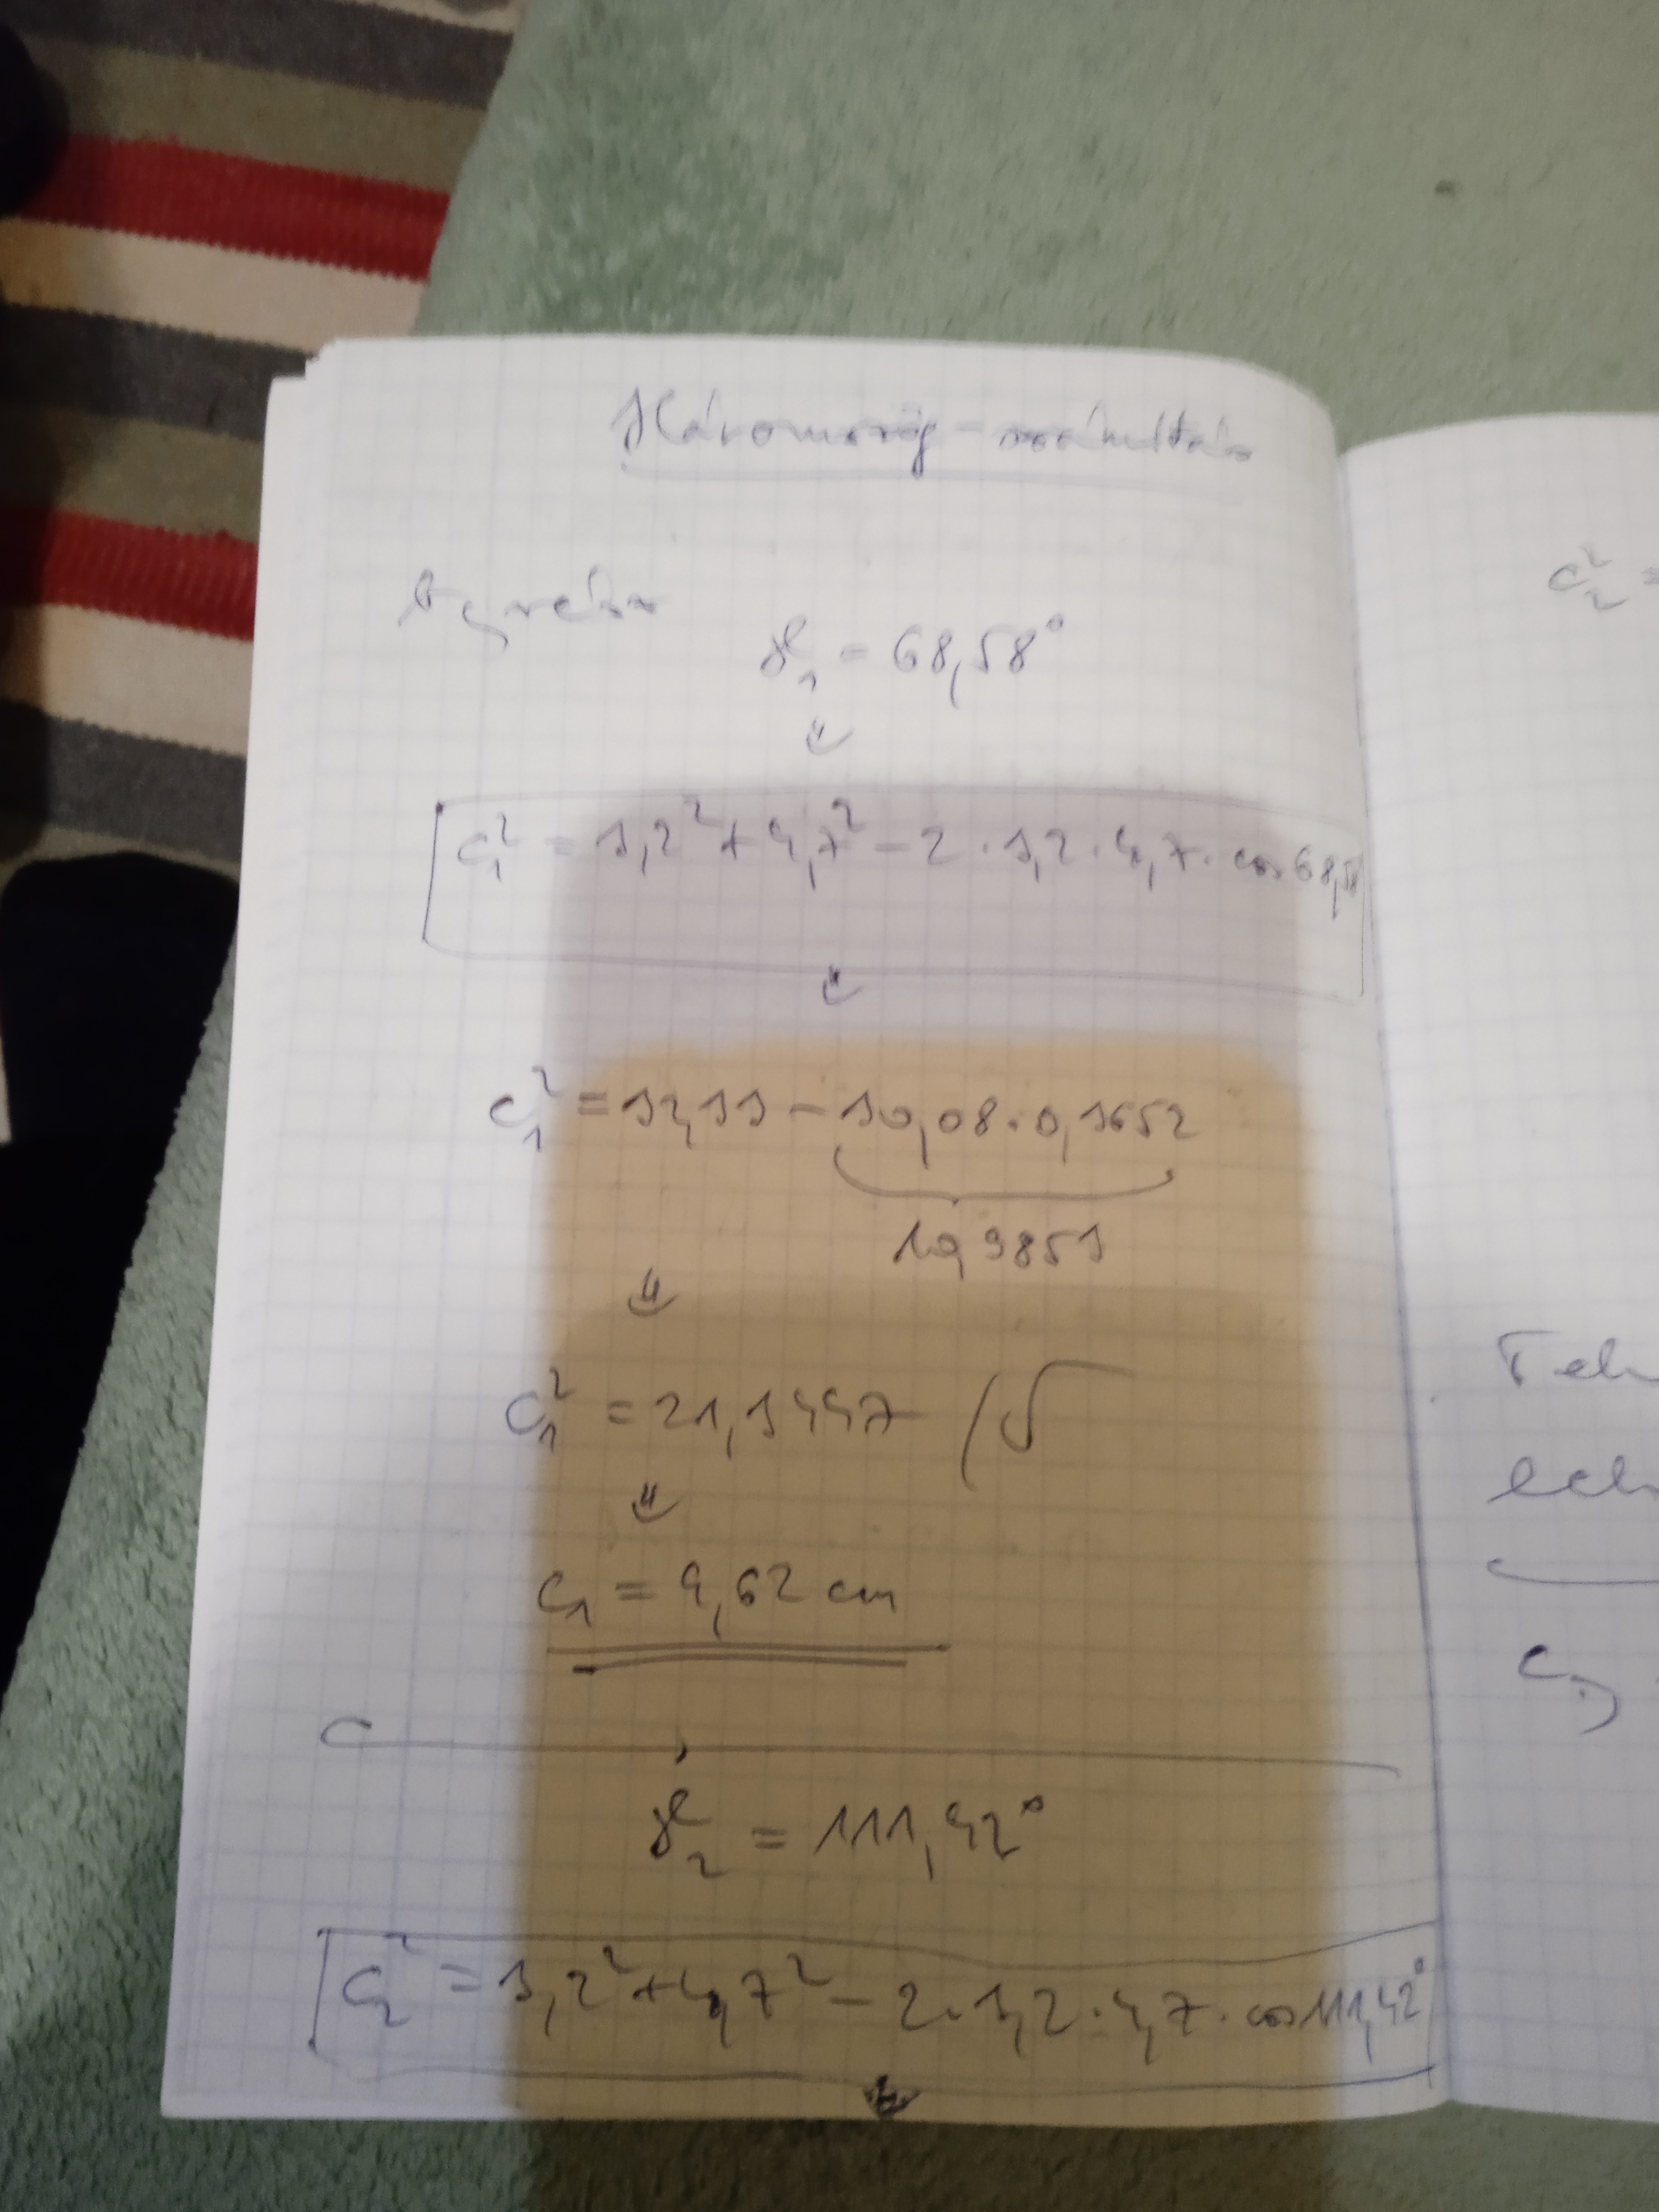 Háromszög-számítás
Egyrészt
γ₁ = 68,58°
⇓
c₁² = 3,2² + 4,7² - 2 · 3,2 · 4,7 · cos 68,58
⇓
c₁² = 32,33 - 30,08 · 0,3652
10,9851
⇓
c₁² = 21,3447 /√
⇓
c₁ = 4,62 cm
γ₂ = 111,42°
c₂² = 3,2² + 4,7² - 2 · 3,2 · 4,7 · cos 111,42°
⇓
c₂² =
Teh